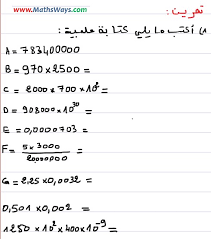 www.MathsWays.com
تمرين :
1) أكتب ما يلي كتابة علمية :
A = 783400000
B = 970 x 2500 =
C = 2000 x 700 x 10⁸ =
D = 908000 x 10³⁰ =
E = 0,0000703 =
F = 5 x 3000 / 20000000 =
G = 2,25 x 0,0032 =
0,501 x 0,002 =
1250 x 10² x 400 x 10⁻⁹ =